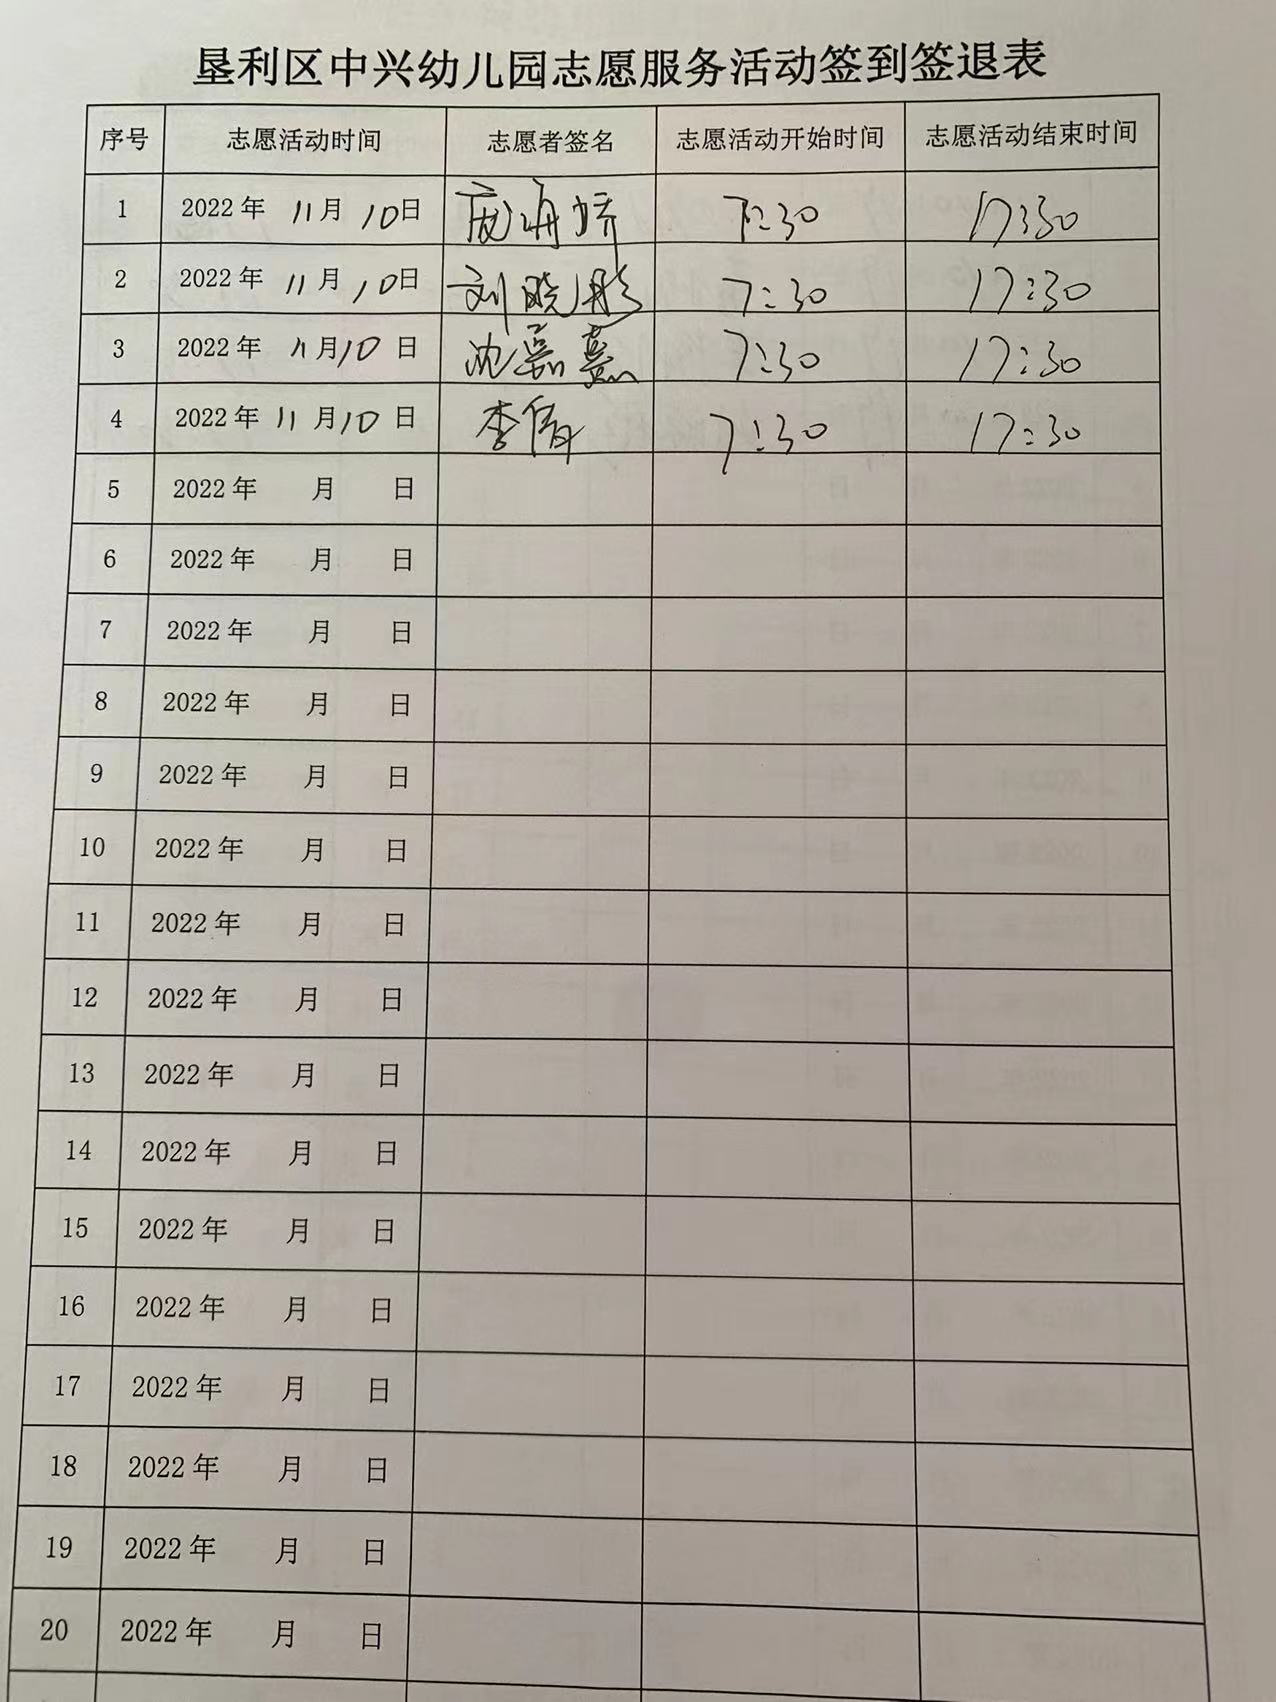 垦利区中兴幼儿园志愿服务活动签到签退表
序号 志愿活动时间 志愿者签名 志愿活动开始时间 志愿活动结束时间
1 2022年 11月 10日 7:30 17:30
2 2022年 11月 10日 刘晓彤 7:30 17:30
3 2022年 11月10日 沈嘉熹 7:30 17:30
4 2022年 11月10日 李倩 7:30 17:30
5 2022年 月 日
6 2022年 月 日
7 2022年 月 日
8 2022年 月 日
9 2022年 月 日
10 2022年 月 日
11 2022年 月 日
12 2022年 月 日
13 2022年 月 日
14 2022年 月 日
15 2022年 月 日
16 2022年 月 日
17 2022年 月 日
18 2022年 月 日
19 2022年 月 日
20 2022年 月 日